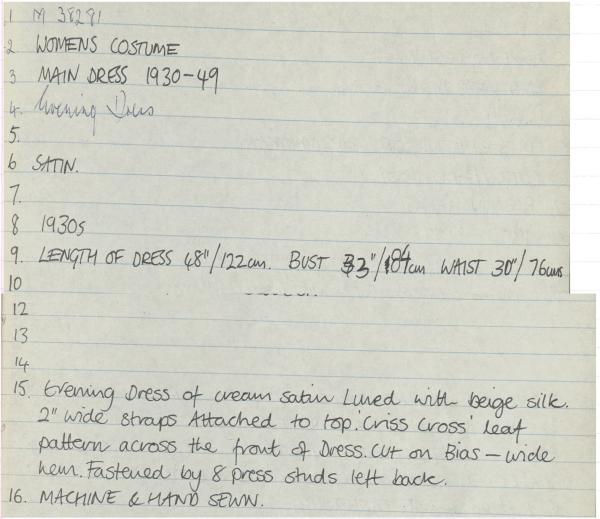 1 M 38281
2 WOMENS COSTUME
3 MAIN DRESS 1930-49
4. Evening Dress
5.
6 SATIN.
7.
8 1930s
9. LENGTH OF DRESS 48"/122cm. BUST 33"/84cm WAIST 30"/76cms
10
12
13
14
15. Evening Dress of cream satin Lined with beige silk.
2" wide straps Attached to top. 'Criss Cross' leaf
pattern across the front of Dress. Cut on Bias - wide
hem. Fastened by 8 press studs left back.
16. MACHINE & HAND SEWN.